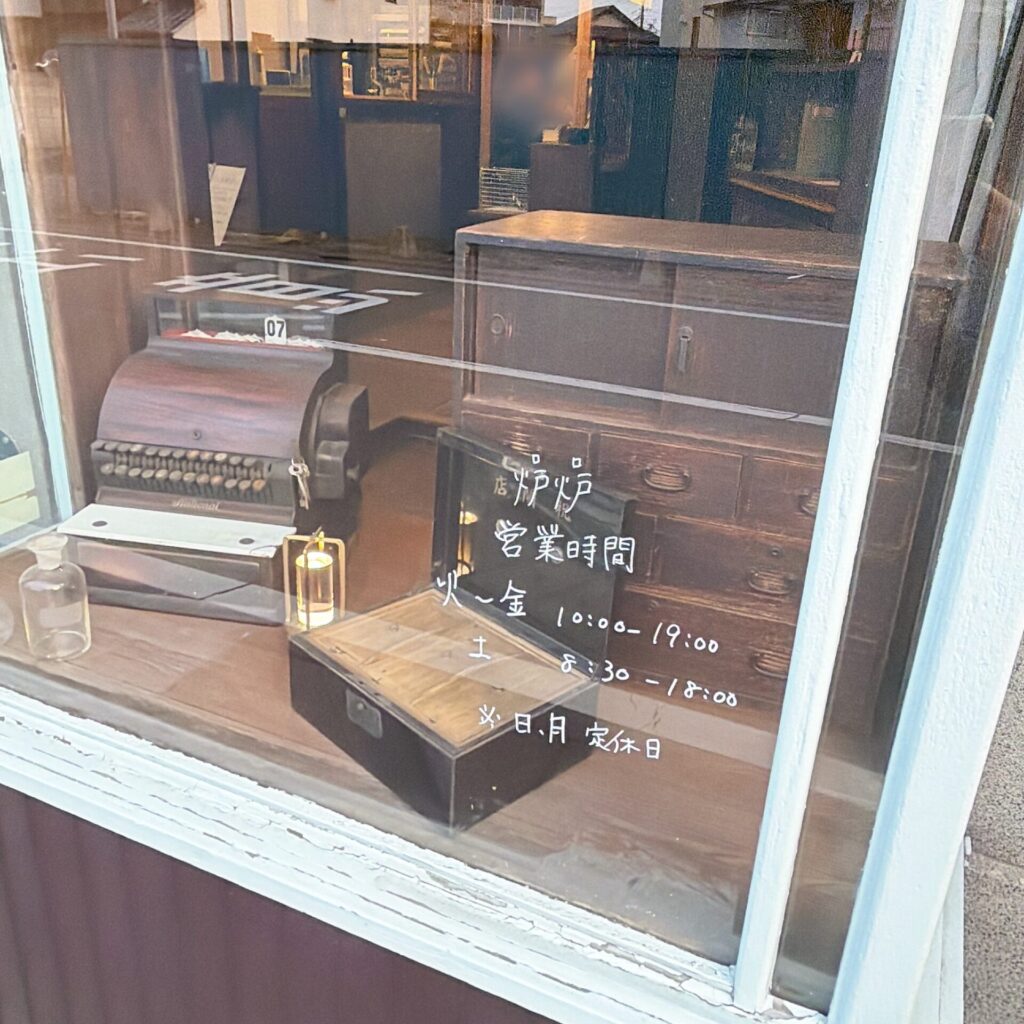 07
National
炉炉
営業時間
火〜金 10:00-19:00
土 8:30-18:00
※日、月 定休日